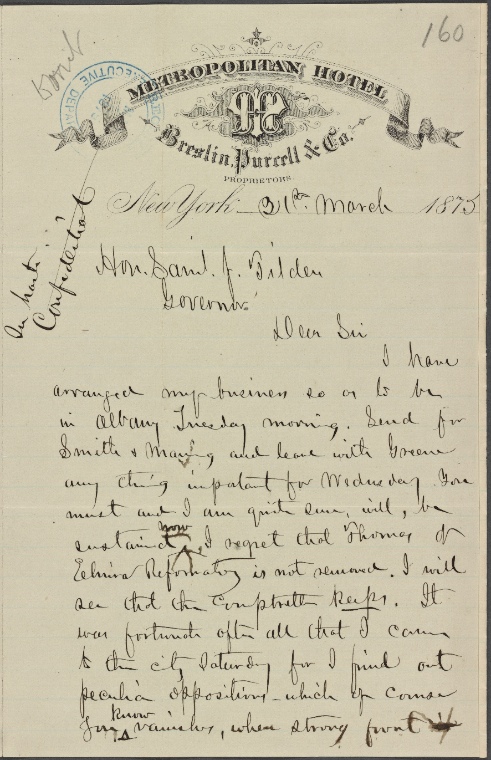 160
EXECUTIVE DEPA
METROPOLITAN HOTEL
Breslin, Purcell & Co.
PROPRIETORS.
New York 31st March 1875
In haste
Confidential
Hon. Saml. J. Tilden
Governor
Dear Sir
I have
arranged my business so as to be
in Albany Tuesday morning. Send for
Smith & and leave with Greene
any thing important for Wednesday. You
must and I am quite sure, will, be
sustained now, I regret that Thomas of
Elmira Reformatory is not removed. I will
see that the Comptroller keeps. It
was fortunate after all that I came
to the city Saturday for I find out
peculiar oppositions - which of course
you know vanishes, when strong front